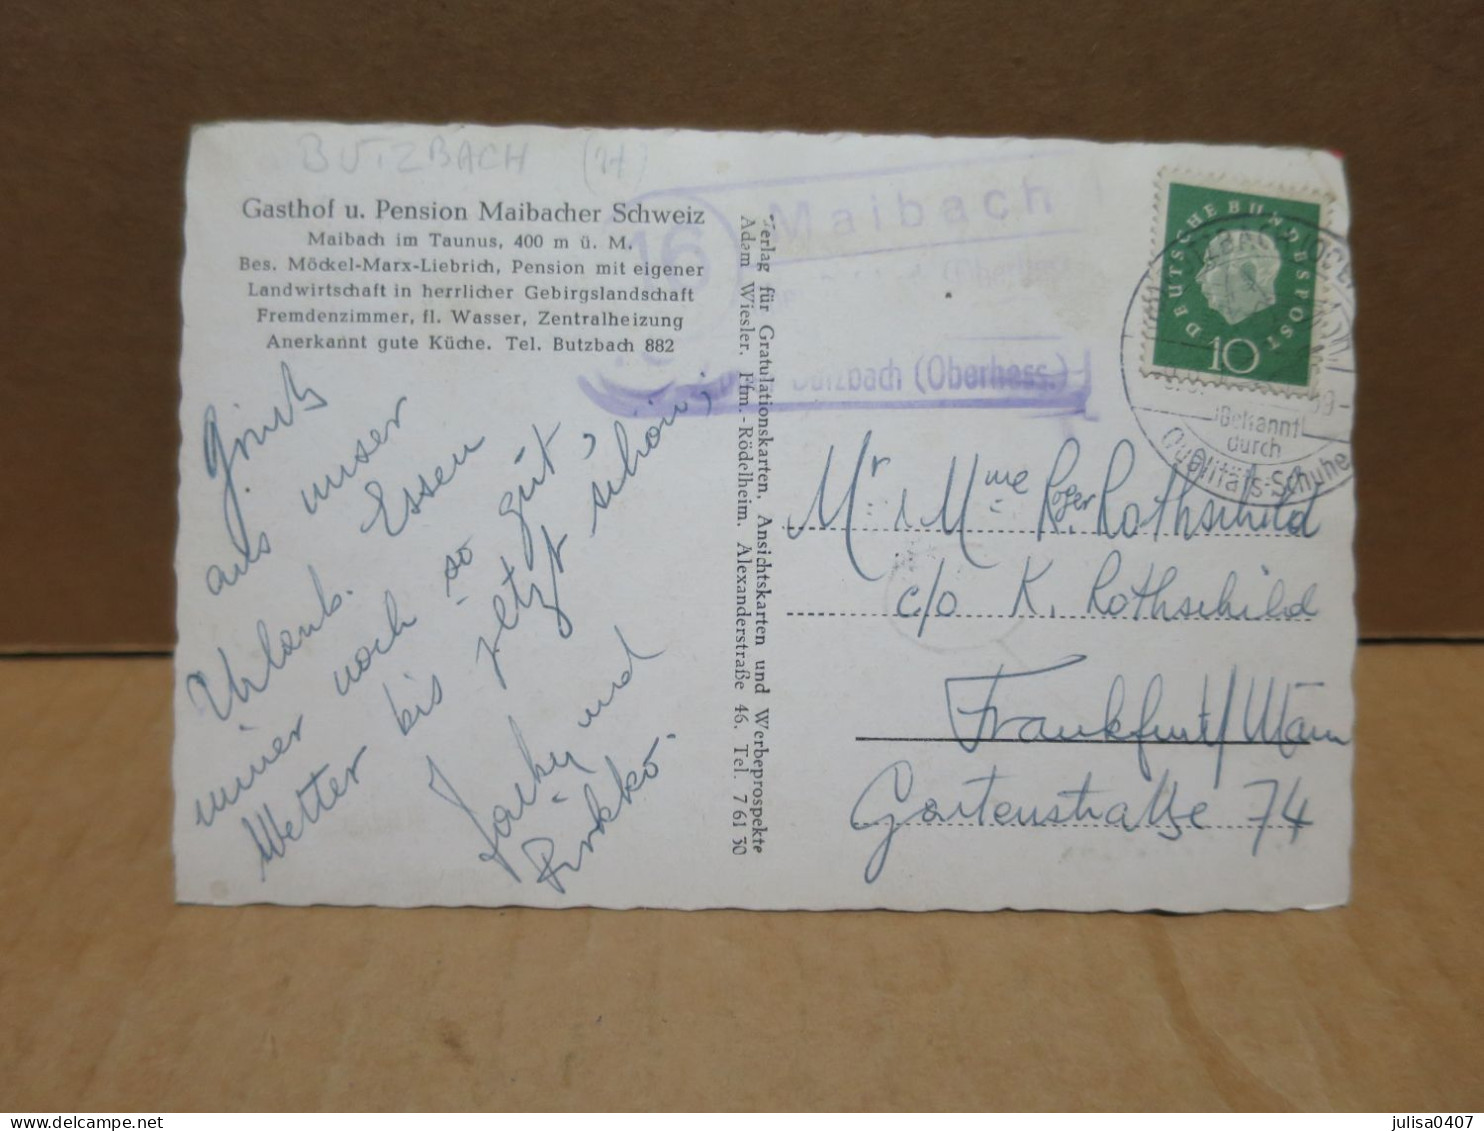 BUTZBACH
Gasthof u. Pension Maibacher Schweiz
Maibach im Taunus, 400 m ü. M.
Bes. Möckel-Marx-Liebrich, Pension mit eigener
Landwirtschaft in herrlicher Gebirgslandschaft
Fremdenzimmer, fl. Wasser, Zentralheizung
Anerkannt gute Küche. Tel. Butzbach 882
Gruß
aus unser
Urlaub. Essen
immer noch so gut,
Wetter bis jetzt schön,
und
Verlag für Gratulationskarten, Ansichtskarten und Werbeprospekte
Adam Wiesler, Ffm.-Rödelheim, Alexanderstraße 46. Tel. 7 61 30
16
Maibach
Butzbach (Oberhess.)
DEUTSCHE BUNDESPOST
10
Bekannt
durch
Qualitäts-Schuhe
Mr Mme Roger Rothschild
c/o K. Rothschild
Frankfurt/Main
Gartenstraße 74
julisa0407